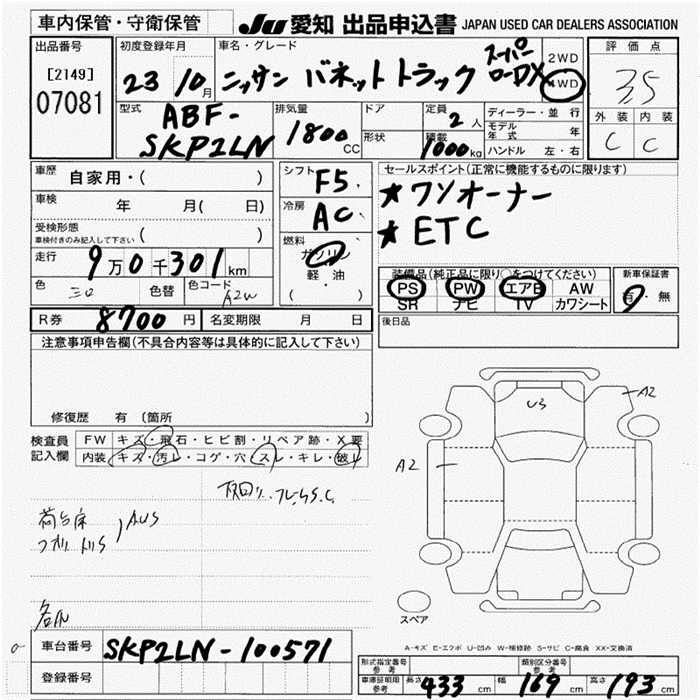 車内保管・守衛保管
JU 愛知 出品申込書 JAPAN USED CAR DEALERS ASSOCIATION
出品番号
[2149]
07081
初度登録年月
23 10月
車名・グレード
ニッサン バネットトラック
スーパーローDX
2WD
4WD
評価点
3.5
外装 内装
C C
型式
ABF-
SKP2LN
排気量
1800 CC
ドア
形状
定員
2人
積載
1000kg
ディーラー・並行
モデル年式 年
ハンドル 左・右
車歴
自家用・( )
車検
年 月( 日)
受検形態
車検付きのみ記入して下さい
( )
走行
9万0千301km
色
色替
色コード
A2W
シフト
F5
冷房
AC
燃料
ガソリン
軽油
( )
セールスポイント(正常に機能するものに限ります)
★ワンオーナー
★ETC
装備品(純正品に限り○をつけてください)
PS PW エアB AW
SR ナビ TV カワシート
新車保証書
有・無
R券
8700円
名変期限 月 日
後日品
注意事項申告欄(不具合内容等は具体的に記入して下さい)
修復歴 有 〔箇所 〕
検査員記入欄
FW キズ・飛石・ヒビ割・リペア跡・X要
内装 キズ・汚レ・コゲ・穴・スレ・キレ・破レ
荷台床
U3
A2
A2
スペア
A-キズ E-エクボ U-凹み W-補修跡 S-サビ C-腐食 XX-交換済
車台番号
SKP2LN-100571
登録番号
型式指定番号
参考
類別区分番号
参考
車庫証明用
参考
長さ 433 cm 幅 169 cm 高さ 193 cm